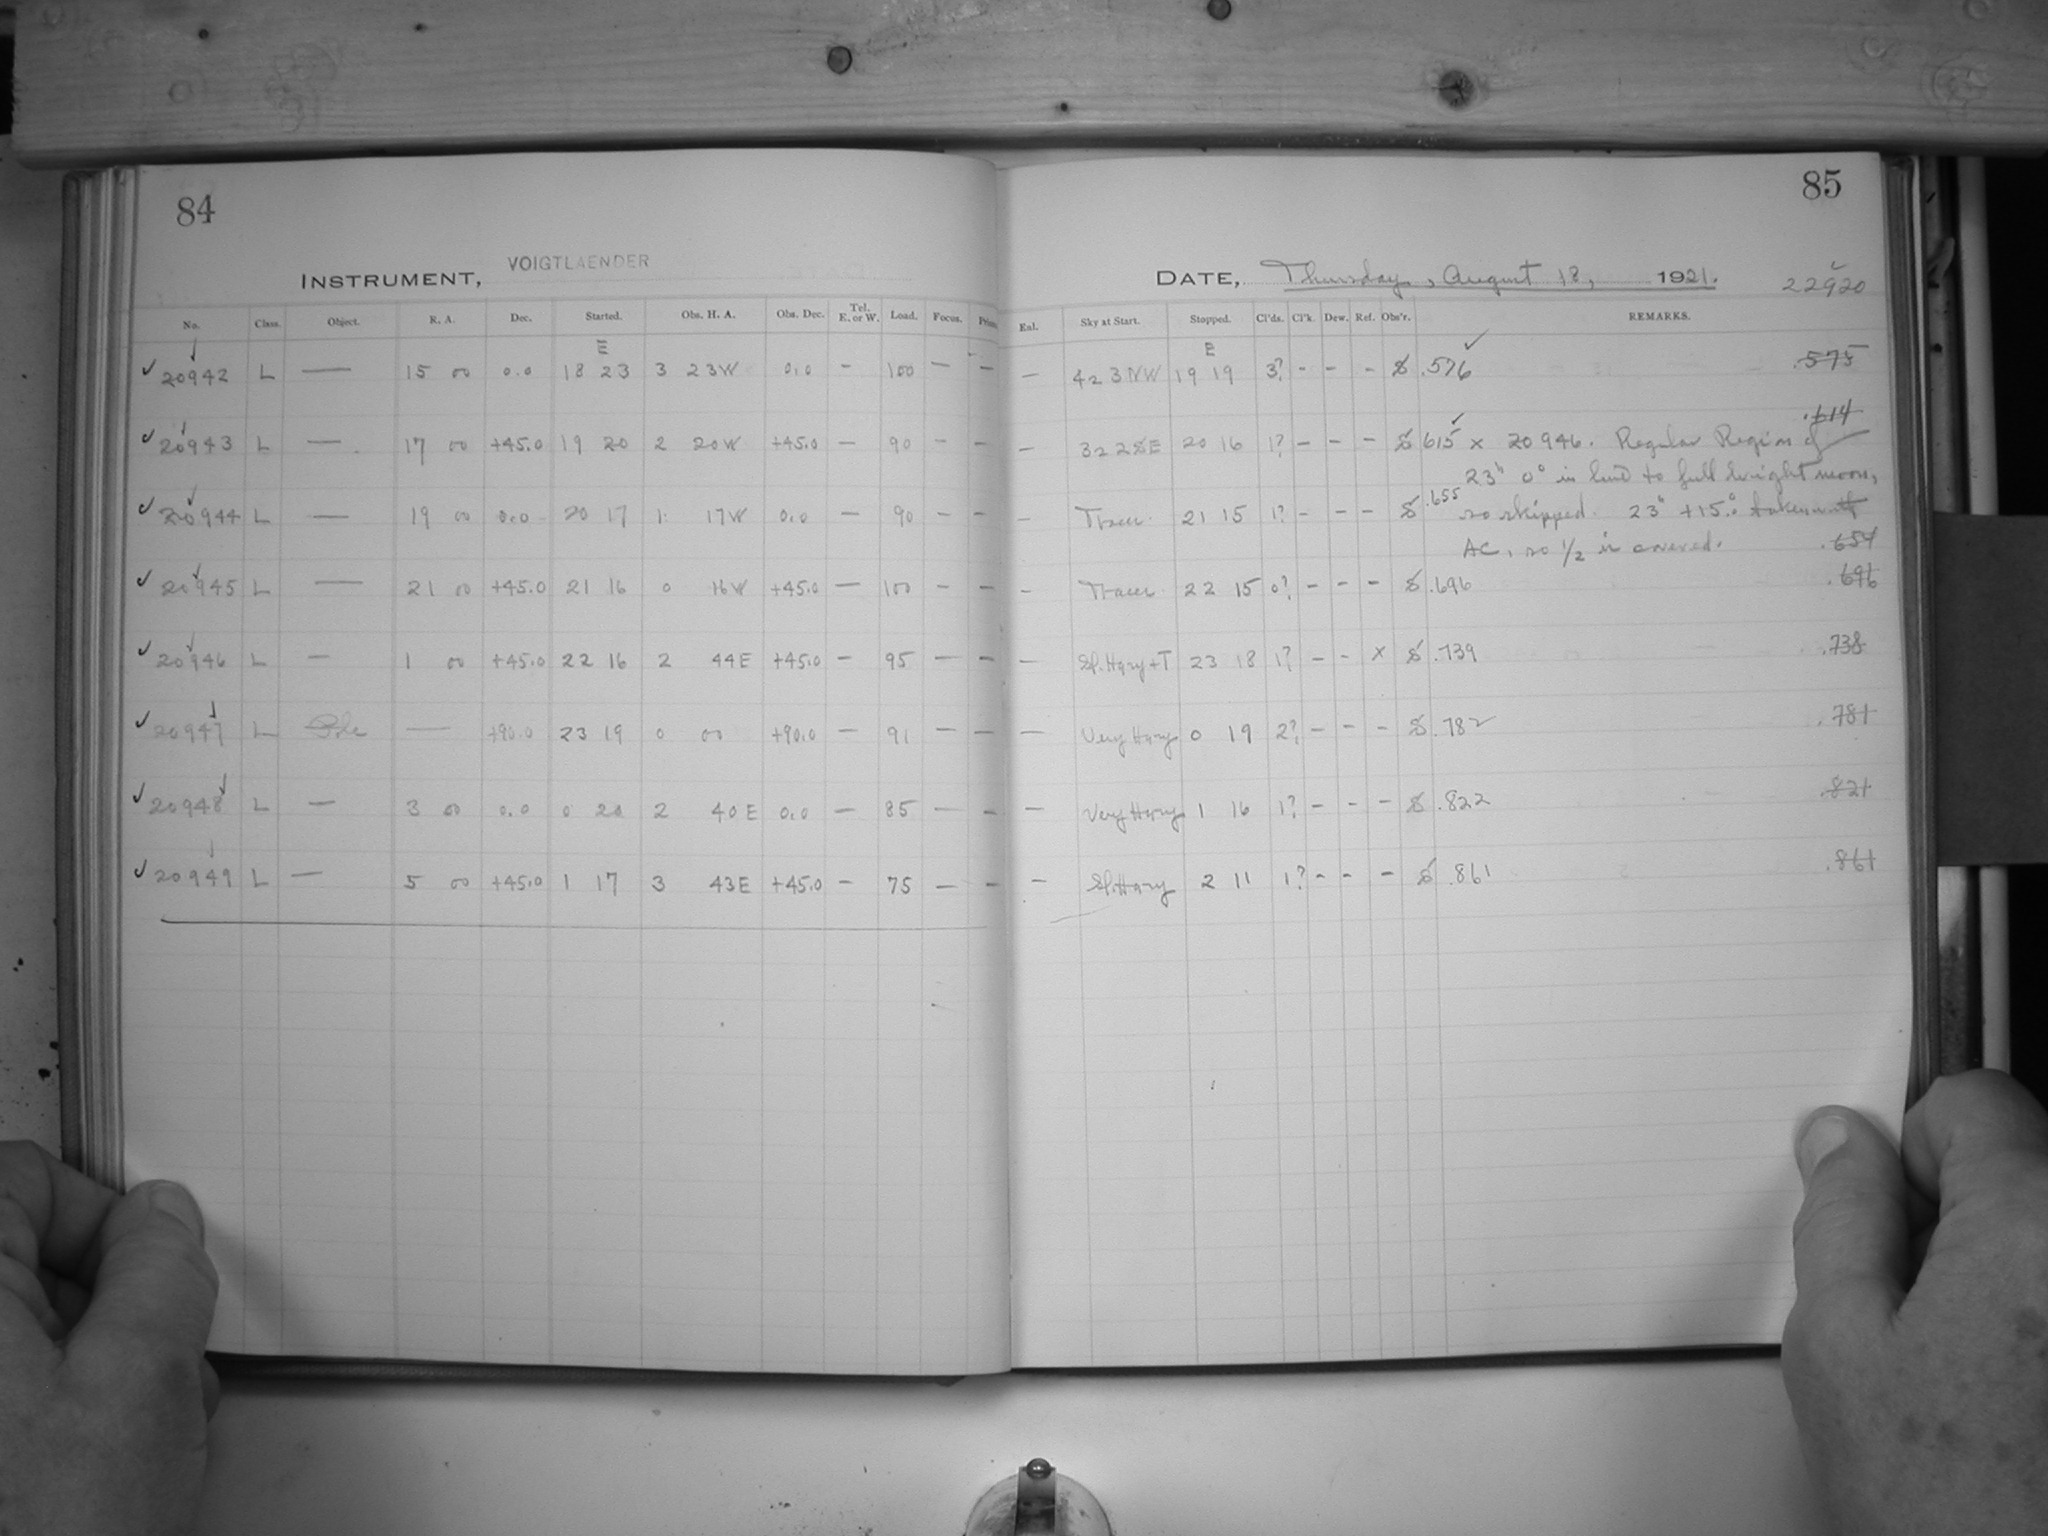 84
85
INSTRUMENT, VOIGTLAENDER
DATE, Thursday, August 18, 1921. 22920
No. Class. Object. R. A. Dec. Started. Obs. H. A. Obs. Dec. Tel. E. or W. Load. Focus. Prism Enl. Sky at Start. Stopped. Cl'ds. Cl'k. Dew. Ref. Obs'r. REMARKS.
E E
✓ 20942 L — 15 00 0.0 18 23 3 23W 0.0 — 100 — — — 423NW 19 19 3? - - - S .576 .575
.614
✓ 20943 L — 17 00 +45.0 19 20 2 20W +45.0 — 90 - - — 322SE 20 16 1? - - - S 615 x 20946. Regular Region of
23h 0° in line to full bright moon,
✓ 20944 L — 19 00 0.0 20 17 1 17W 0.0 — 90 - - - Traces 21 15 1? - - - S .655 so skipped. 23h +15.°0 taken with
AC, so 1/2 is covered. .654
✓ 20945 L — 21 00 +45.0 21 16 0 16W +45.0 — 100 — - - Traces 22 15 0? - - - S .696 .696
✓ 20946 L — 1 00 +45.0 22 16 2 44E +45.0 - 95 - - — Sl. Hazy+T 23 18 1? - - x S .739 .738
✓ 20947 L Pole — +90.0 23 19 0 00 +90.0 — 91 - — — Very Hazy 0 19 2? - - - S .782 .781
✓ 20948 L — 3 00 0.0 0 20 2 40E 0.0 — 85 — - — Very Hazy 1 16 1? - - - S .822 .821
✓ 20949 L — 5 00 +45.0 1 17 3 43E +45.0 — 75 — - — Sl. Hazy 2 11 1? - - - S .861 .861